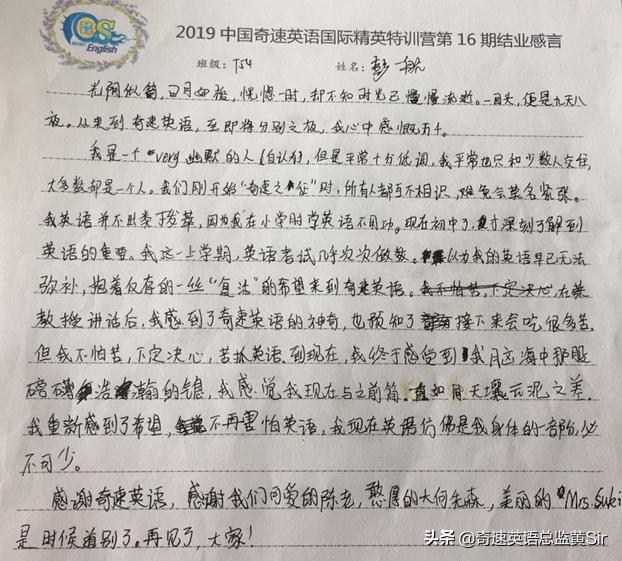 English
2019 中国奇速英语国际精英特训营第 16 期结业感言
班级：T54 姓名：彭一航
光阴似箭，日月如梭，恍惚一时，却不知时光已慢慢流逝。一回头，便是九天八
夜。从来到奇速英语，至即将分别之夜，我心中感慨万千。
我是一个very幽默的人（自认为），但是平常十分低调，我平常也只和少数人交往，
大多数都是一个人。我们刚开始“奇速之征”时，所有人都互不相识，难免会莫名紧张。
我英语并不出类拔萃，因为我在小学时学英语不用功。现在初中了，才深刻了解到
英语的重要。我这一上学期，英语考试几乎次次做数。以为我的英语早已无法
弥补，抱着仅存的一丝“复活”的希望来到奇速英语。在
教授讲话后，我感到了奇速英语的神奇，也预知了接下来会吃很多苦。
但我不怕苦，下定决心，苦抓英语。到现在，我终于感受到我脑海中那股
磅礴浩瀚的信息，我感觉我现在与之前简直如同天壤云泥之差。
我重新感到了希望，不再害怕英语，我现在英语仿佛是我身体的一部份，必
不可少。
感谢奇速英语，感谢我们可爱的陈老，憨厚的大何先森，美丽的Mrs.Suki
是时候道别了。再见了，大家！
头条 @奇速英语总监黄Sir